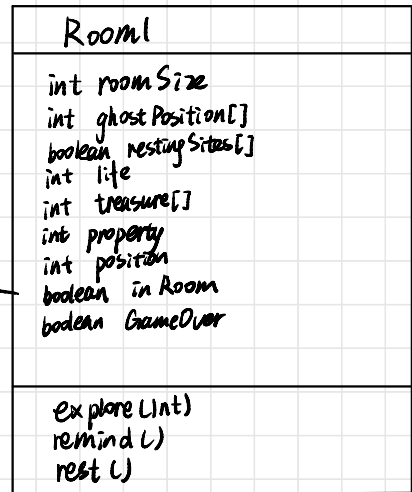 Room1
int roomSize
int ghostPosition[]
boolean restingSites[]
int life
int treasure[]
int property
int position
boolean inRoom
bodean GameOver
explore(int)
remind()
rest()